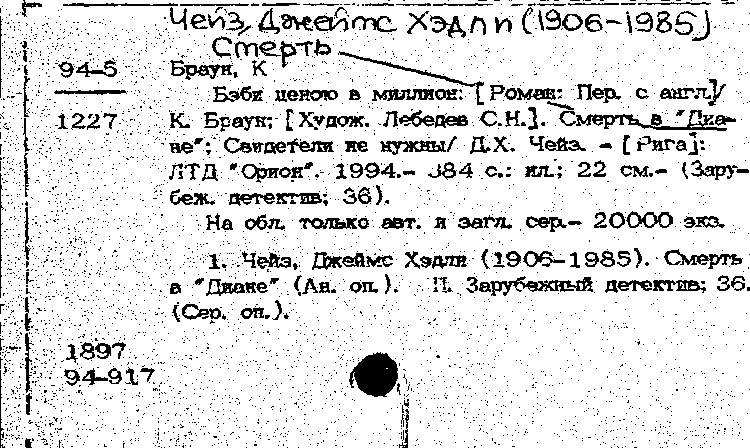 Чейз, Джеймс Хэдли (1906-1985)
Смерть
94-5 Браун, К
Бэби ценою в миллион: [Роман: Пер. с англ.]/
1227 К. Браун; [Худож. Лебедев С.Н.]. Смерть в "Диа-
не"; Свидетели не нужны/ Д.Х. Чейз. - [Рига]:
ЛТД "Орион". 1994.- 384 с.: ил.; 22 см.- (Зару-
беж. детектив; 36).
На обл. только авт. и загл. сер.- 20000 экз.
1. Чейз, Джеймс Хэдли (1906-1985). Смерть
в "Диане" (Ан. оп.). II. Зарубежный детектив; 36.
(Сер. оп.).
1897
94-917